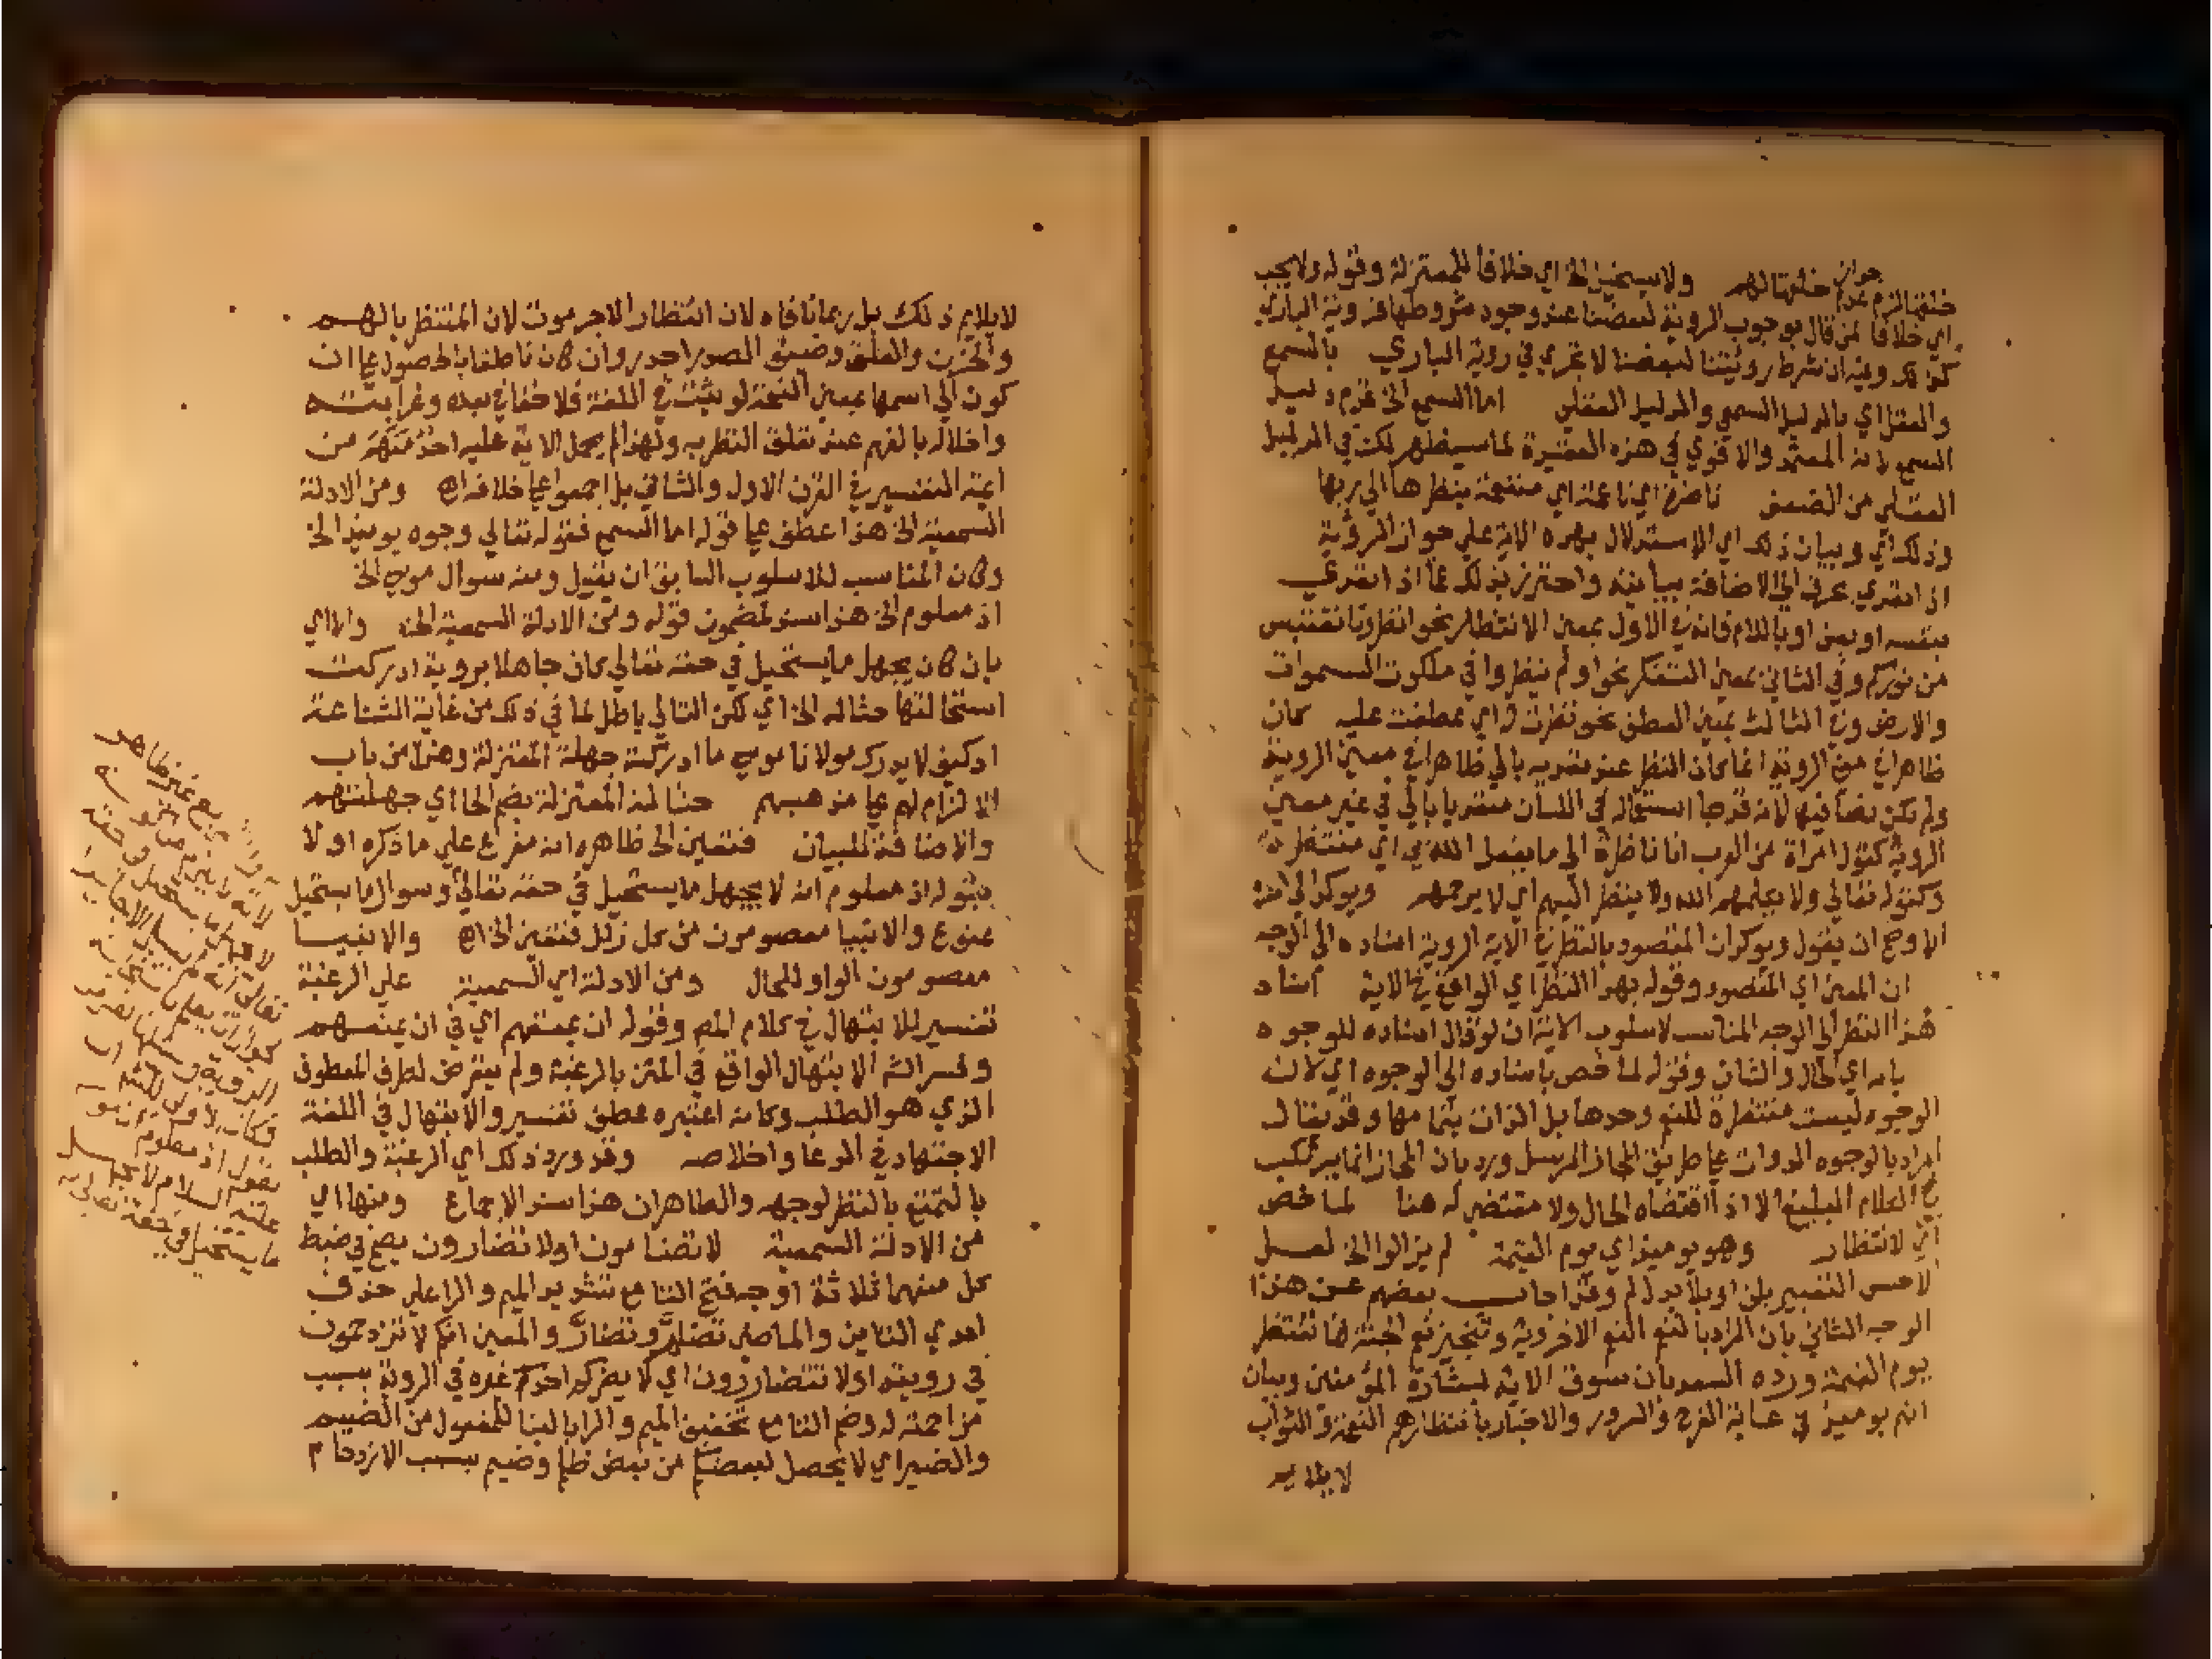 جواز
خلقها لزم عدم خلقها لهم ولا يستحيل الخ اي خلافا للمعتزلة وقوله ولا يجب
اي خلافا لمن قال بوجوب الروية لبعضنا عند وجود شروطها فروية الباري
كذلك وفيه ان شرط رؤيتنا لبعضنا لا تجري في روية الباري بالسمع
والعقل اي بالدليل السمعي والدليل العقلي اما السمع الخ قدم دليل
السمع لانه المعتمد والاقوي في هذه العقيدة لما سيظهر لك في الدليل
العقلي من الضعف ناضرة اي ناعمة اي متنعمة بنظرها الي ربها
وذلك اي وبيان ذلك اي الاستدلال بهذه الاية علي جواز الروية
اذا تعدي بحرف الخ الاضافة بيانية واحترز بذلك عما اذا تعدي
بنفسه او بفي او باللام فانه في الاول بمعني الانتظار نحو انظرونا نقتبس
من نوركم وفي الثاني بمعني التفكر نحو اولم ينظروا في ملكوت السموات
والارض وفي الثالث بمعني العطف نحو نظرت له اي عطفت عليه كان
ظاهرا في معني الروية انما كان النظر عند تعديه بالي ظاهرا في معني الروية
ولم يكن نصا فيها لانه قد جا استعماله في اللسان متعديا بالي في غير معني
الروية كقول امراة من العرب انا ناظرة الي ما يفعل الله بي اي منتظرة
وكقوله تعالي ولا يكلمهم الله ولا ينظر اليهم اي لا يرحمهم ويوكد الخ
الاوضح ان يقول ويوكد ان المقصود بالنظر في الاية الروية اسناده الي الوجه
ان المعني اي المقصود وقوله بهذا النظر اي الواقع في الاية اسناد
هذا النظر الي الوجه المناسب لاسلوب الاية ان لو قال اسناده للوجوه
بانه اي الحال والشان وقوله لما خص باسناده الي الوجوه اي لان
الوجوه ليست منتظرة للنعم وحدها بل الذات بتمامها وقد يقال
المراد بالوجوه الذوات علي طريق المجاز المرسل ورد بان المجاز انما يرتكب
في الكلام البليغ الا اذا اقتضاه الحال ولا مقتضي له هنا لما خص
اي الانتظار وهو يوميذ اي يوم القيمة لم يزالوا الخ لعل
الاحسن التعبير بلن او بلا بدل لم وقد اجاب بعضهم عن هذا
الوجه الثاني بان المراد بالنعم النعم الاخروية وتنجيز نعم الجنة انما تنتظر
يوم القيمة ورده السعد بان سوق الاية لبشارة المؤمنين وبيان
انهم يوميذ في غاية الفرح والسرور والاخبار بانتظارهم النعمة والثواب
لا يلايم
لا يلايم ذلك بل ربما نافاه لان انتظار الاجر موت لان المنتظر بالهم
والحزن والقلق وضيق الصدر احدر وان كان ناطقا بالحصول علي ان
كون الي اسمها بمعني النعمة لو ثبت في اللغة فلا خفا في بعده وغرابته
واخلاله بالفهم عند تعلق النظر به ولهذا لم يحمل الاية عليه احد منهم من
ايمة التفسير في القرن الاول والثاني بل اجمعوا علي خلافه اه ومن الادلة
السمعية الخ هذا عطف علي قوله اما السمع فقوله تعالي وجوه يوميذ الخ
وكان المناسب للاسلوب السابق ان يقول ومنه سوال موسي الخ
اذ معلوم الخ هذا سند لمضمون قوله ومن الادلة السمعية الخ والا اي
بان كان يجهل ما يستحيل في حقه تعالي كان جاهلا بروية ادركت
استحالتها حثالة الخ اي لكن التالي باطل لما في ذلك من غاية الشناعة
اذ كيف لا يدرك مولانا موسي ما ادركته جهلة المعتزلة وهذا من باب
الالزام لهم علي مذهبهم حثالة المعتزلة بضم الحا اي جهلتهم
والاضافة للبيان فتعين الخ ظاهره انه مفرع علي ما ذكره اولا
بقوله اذ معلوم انه لا يجهل ما يستحيل في حقه تعالي وسوال ما يستحيل
ممنوع والانبيا معصومون من كل زلل فتعين الخ اه والانبيا
معصومون الواو للحال ومن الادلة اي السمعية علي الرغبة
تفسير للابتهال في كلام المص وقوله ان يمتعهم اي في ان يمتعهم
وفسر الش الابتهال الواقع في المتن بالرغبة ولم يتعرض لطرف المعطوف
الذي هو الطلب وكانه اعتبره عطف تفسير والابتهال في اللغة
الاجتهاد في الدعا واخلاصه وقد ورد ذلك اي الرغبة والطلب
بالتمتع بالنظر لوجهه والظاهر ان هذا سند الاجماع ومنها اي
من الادلة السمعية لا تضامون او لا تضارون يصح في ضبط
كل منهما ثلاثة اوجه فتح التا مع تشديد الميم والرا علي حذف
احدي التاين والماضي تضام وتضار والمعني انكم لا تزدحمون
في رويته او لا تتضاررون اي لا يضركم احدكم غيره في الروية بسبب
مزاحمته له وضم التا مع تخفيف الميم والرا بالبنا للمفعول من الضيم
والضير اي لا يحصل لبعضكم من بعض ظلم وضيم بسبب الازدحام
غير ظاهر
لانه لا يلزم من كونه
لا يجهل ما يستحيل في حقه
تعالي انه لم يسال الا جايز
لجواز ان يعلم باستحالة
الروية
فكان الاولي للش ان
يقول اذ معلوم ان موسي
عليه السلام لا يجهل
ما يستحيل في حقه تعالي